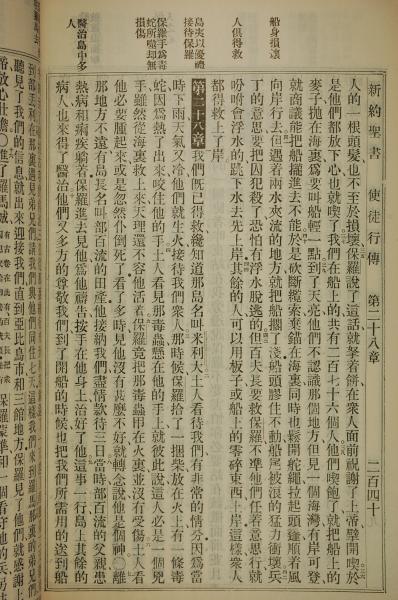 新約聖書 使徒行傳 第二十八章 二百四十
船身損壞
人俱得救
島夷以優禮
接待保羅
保羅手爲毒
蛇所噬却無
損傷
醫治島中多
人
人的一根頭髮也不至於損壞保羅說了這話就拏着餅在衆人面前祝謝了上帝擘開喫於
是他們都放下心也就喫了我們在船上的共有二百七十六個人他們喫飽了就把船上的
麥子抛在海裏爲要叫船輕一點到了天亮他們不認識那個地方但見一個海灣有岸可登
就商議能把船攏進去不能於是砍斷纜索棄錨在海裏同時也鬆開舵繩拉起頭篷順着風
向岸行去但遇着兩水夾流的地方就把船擱了淺船頭膠住不動船尾被浪的猛力衝壞兵
丁的意思要把囚犯殺了恐怕有浮水脫逃的但百夫長要救保羅不準他們任着意思行就
吩咐會浮水的跳下水去先上岸其餘的人可以用板子或船上的零碎東西上岸這樣衆人
都得救上了岸
第二十八章 我們既已得救纔知道那島名叫米利大土人看待我們有非常的情分因爲當
時下雨天氣又冷他們就生火接待我們衆人那時候保羅拾了一捆柴放在火上有一條毒
蛇因爲熱了出來咬住他的手土人看見那毒蟲懸在他的手上就彼此說這人必是一個兇
手雖然從海裏救上來天理還不容他活着保羅竟把那毒蟲甩在火裏並沒有受傷土人看
他必要腫起來或是忽然仆倒死了看了多時見他沒有甚麼不好就轉念說他是個神○離
那地方不遠有島長名叫部百流的田產他接納我們盡情款待三日當時部百流的父親患
熱病和痢疾躺着保羅進去見他爲他禱告按手在他身上治好了他這事一行島上其餘的
病人也來得了醫治他們又多方的尊敬我們到了開船的時候也把我們所需用的送到船
聽見了我們的信息就出來迎接我們直到亞比烏市和三館地方保羅見了他們就感謝上